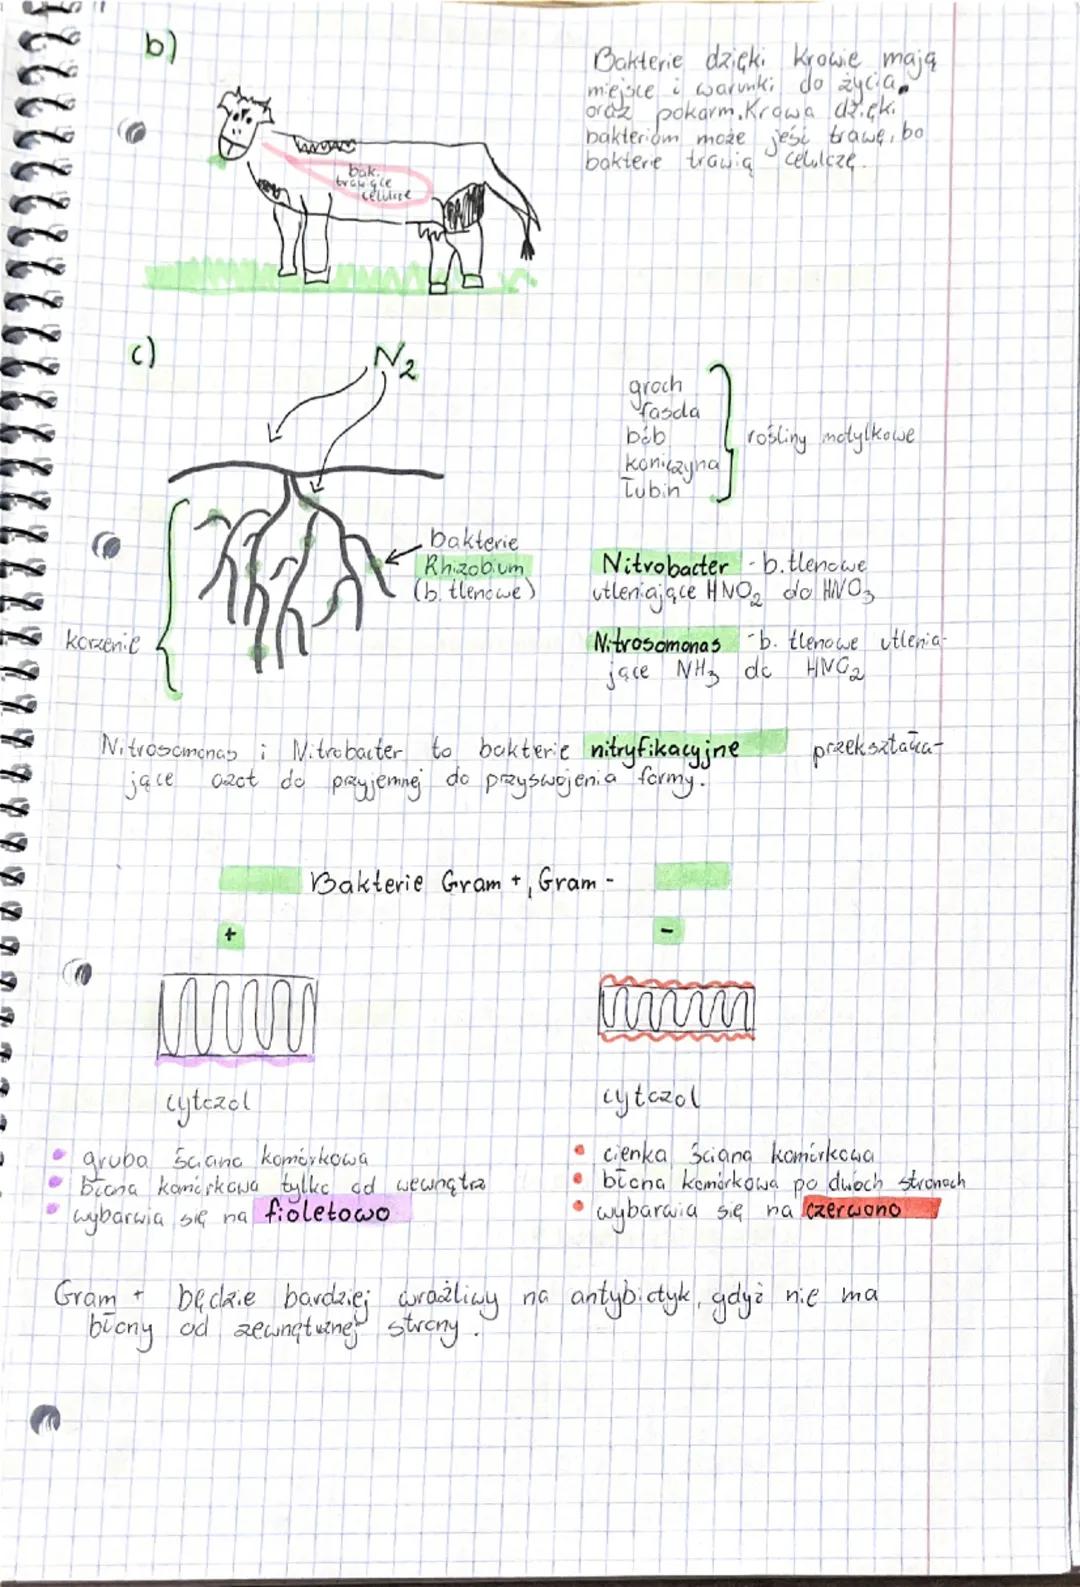 b)
Bakterie dzięki krowie mają
miejsce i warunki do życia
oraz pokarm. Krowa dzięki
bakteriom może jeść trawę, bo
bakterie trawią celulczę.
bak.
trawiące
celulczę
c)
N2
groch
fasola
bób
koniczyna
łubin
rośliny motylkowe
bakterie
Rhizobium
(b. tlenowe)
korzenie
Nitrobacter - b. tlenowe
utleniające HNO2 do HNO3
Nitrosomonas - b. tlenowe utlenia-
jące NH3 do HNO2
Nitrosomonas i Nitrobacter to bakterie nitryfikacyjne przekształca-
jące azot do przyjemnej do przyswojenia formy.
Bakterie Gram +, Gram -
+
-
cytozol
cytozol
• gruba ściana komórkowa
• błona komórkowa tylko od wewnątrz
• wybarwia się na fioletowo
• cienka ściana komórkowa
• błona komórkowa po dwóch stronach
• wybarwia się na czerwono
Gram + będzie bardziej wrażliwy na antybiotyk, gdyż nie ma
błony od zewnętrznej strony.